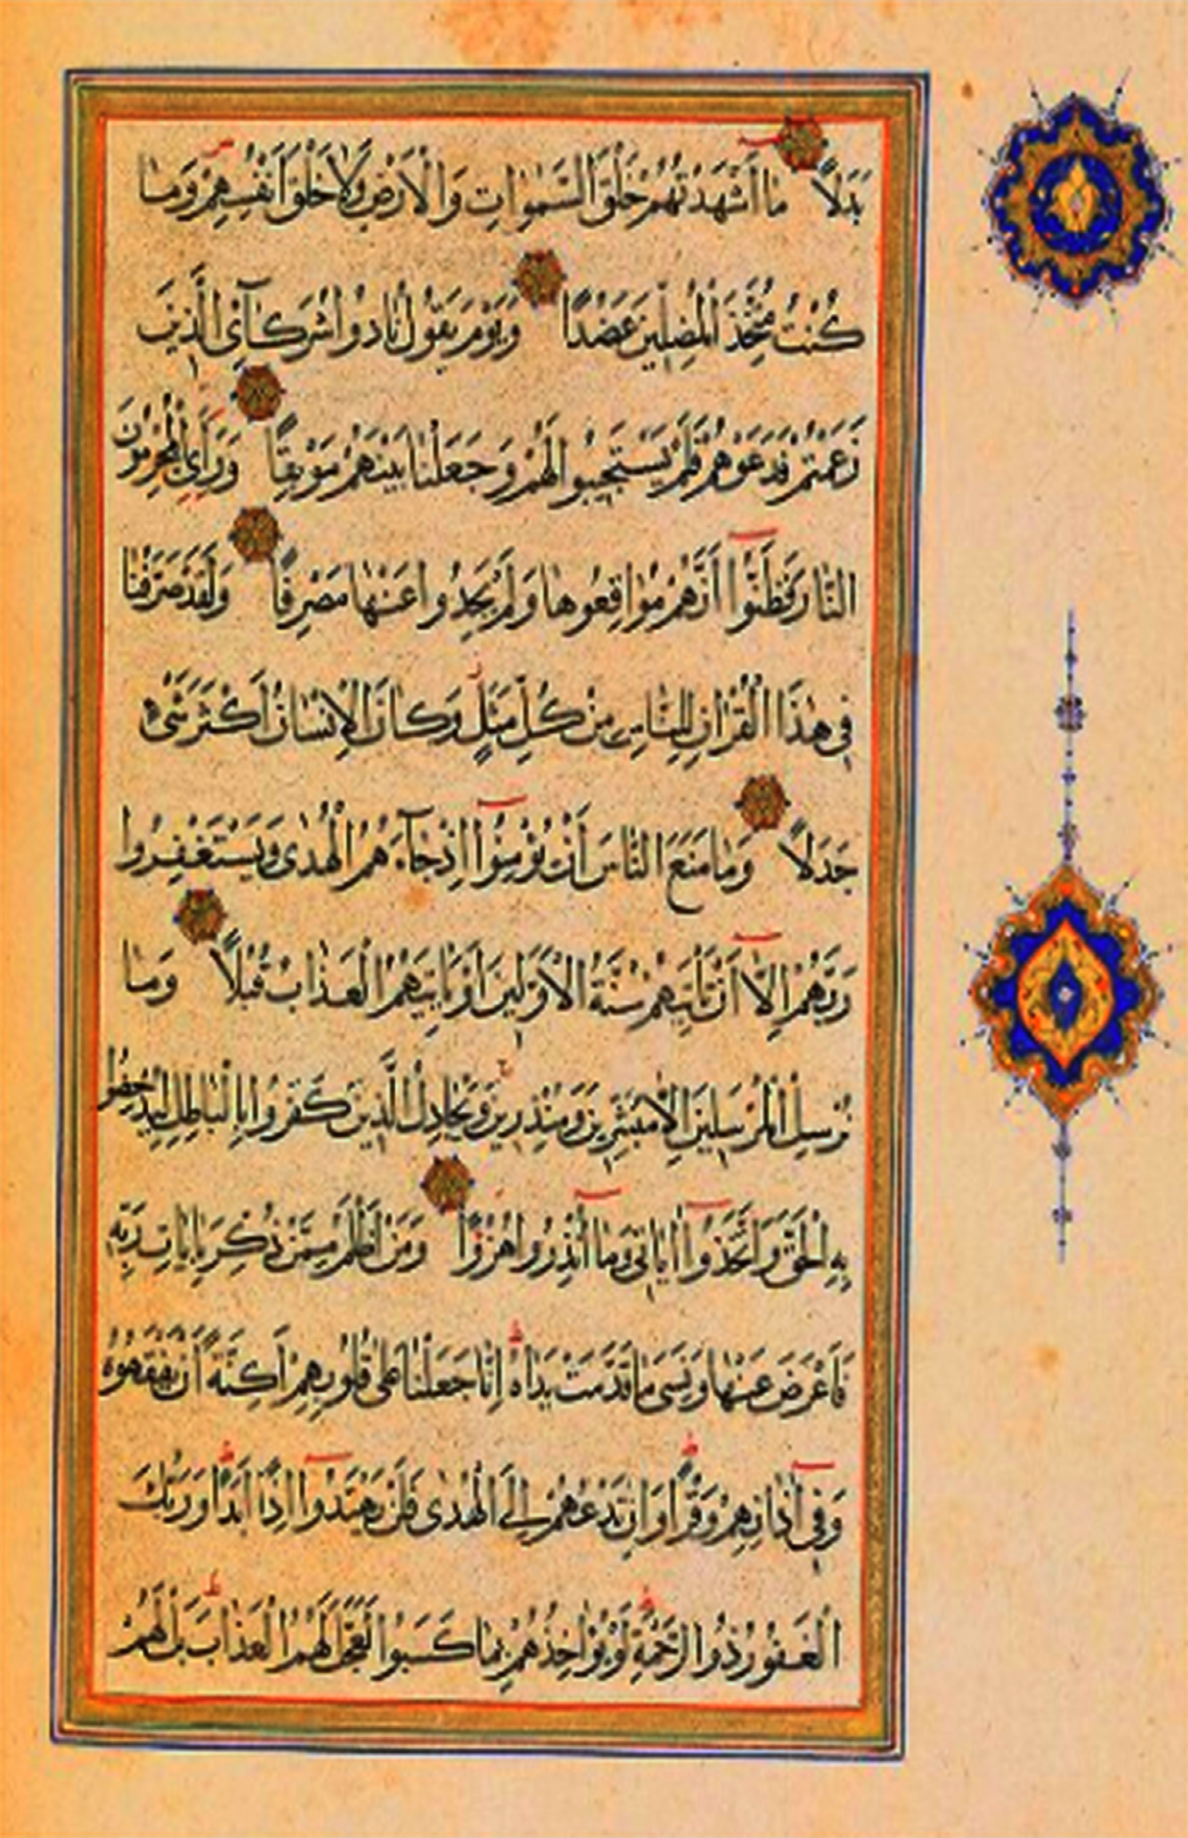 بَدَلًا مَا أَشْهَدْتُهُمْ خَلْقَ السَّمٰوَاتِ وَالْاَرْضِ وَلَا خَلْقَ اَنْفُسِهِمْ وَمَا
كُنْتُ مُتَّخِذَ الْمُضِلّٖينَ عَضُدًا وَيَوْمَ يَقُولُ نَادُوا شُرَكَآئِ الَّذٖينَ
زَعَمْتُمْ فَدَعَوْهُمْ فَلَمْ يَسْتَجٖيبُوا لَهُمْ وَجَعَلْنَا بَيْنَهُمْ مَوْبِقًا وَرَاَى الْمُجْرِمُونَ
النَّارَ فَظَنُّوا اَنَّهُمْ مُوَاقِعُوهَا وَلَمْ يَجِدُوا عَنْهَا مَصْرِفًا وَلَقَدْ صَرَّفْنَا
فٖى هٰذَا الْقُرْاٰنِ لِلنَّاسِ مِنْ كُلِّ مَثَلٍ وَكَانَ الْاِنْسَانُ اَكْثَرَ شَىْءٍ
جَدَلًا وَمَا مَنَعَ النَّاسَ اَنْ يُؤْمِنُوا اِذْ جَآءَهُمُ الْهُدٰى وَيَسْتَغْفِرُوا
رَبَّهُمْ اِلَّا اَنْ تَاْتِيَهُمْ سُنَّةُ الْاَوَّلٖينَ اَوْ يَاْتِيَهُمُ الْعَذَابُ قُبُلًا وَمَا
نُرْسِلُ الْمُرْسَلٖينَ اِلَّا مُبَشِّرٖينَ وَمُنْذِرٖينَ وَيُجَادِلُ الَّذٖينَ كَفَرُوا بِالْبَاطِلِ لِيُدْحِضُوا
بِهِ الْحَقَّ وَاتَّخَذُوا اٰيَاتٖى وَمَا اُنْذِرُوا هُزُوًا وَمَنْ اَظْلَمُ مِمَّنْ ذُكِّرَ بِاٰيَاتِ رَبِّهٖ
فَاَعْرَضَ عَنْهَا وَنَسِىَ مَا قَدَّمَتْ يَدَاهُ اِنَّا جَعَلْنَا عَلٰى قُلُوبِهِمْ اَكِنَّةً اَنْ يَفْقَهُوهُ
وَفٖى اٰذَانِهِمْ وَقْرًا وَاِنْ تَدْعُهُمْ اِلَى الْهُدٰى فَلَنْ يَهْتَدُوا اِذًا اَبَدًا وَرَبُّكَ
الْغَفُورُ ذُو الرَّحْمَةِ لَوْ يُؤَاخِذُهُمْ بِمَا كَسَبُوا لَعَجَّلَ لَهُمُ الْعَذَابَ بَلْ لَهُمْ